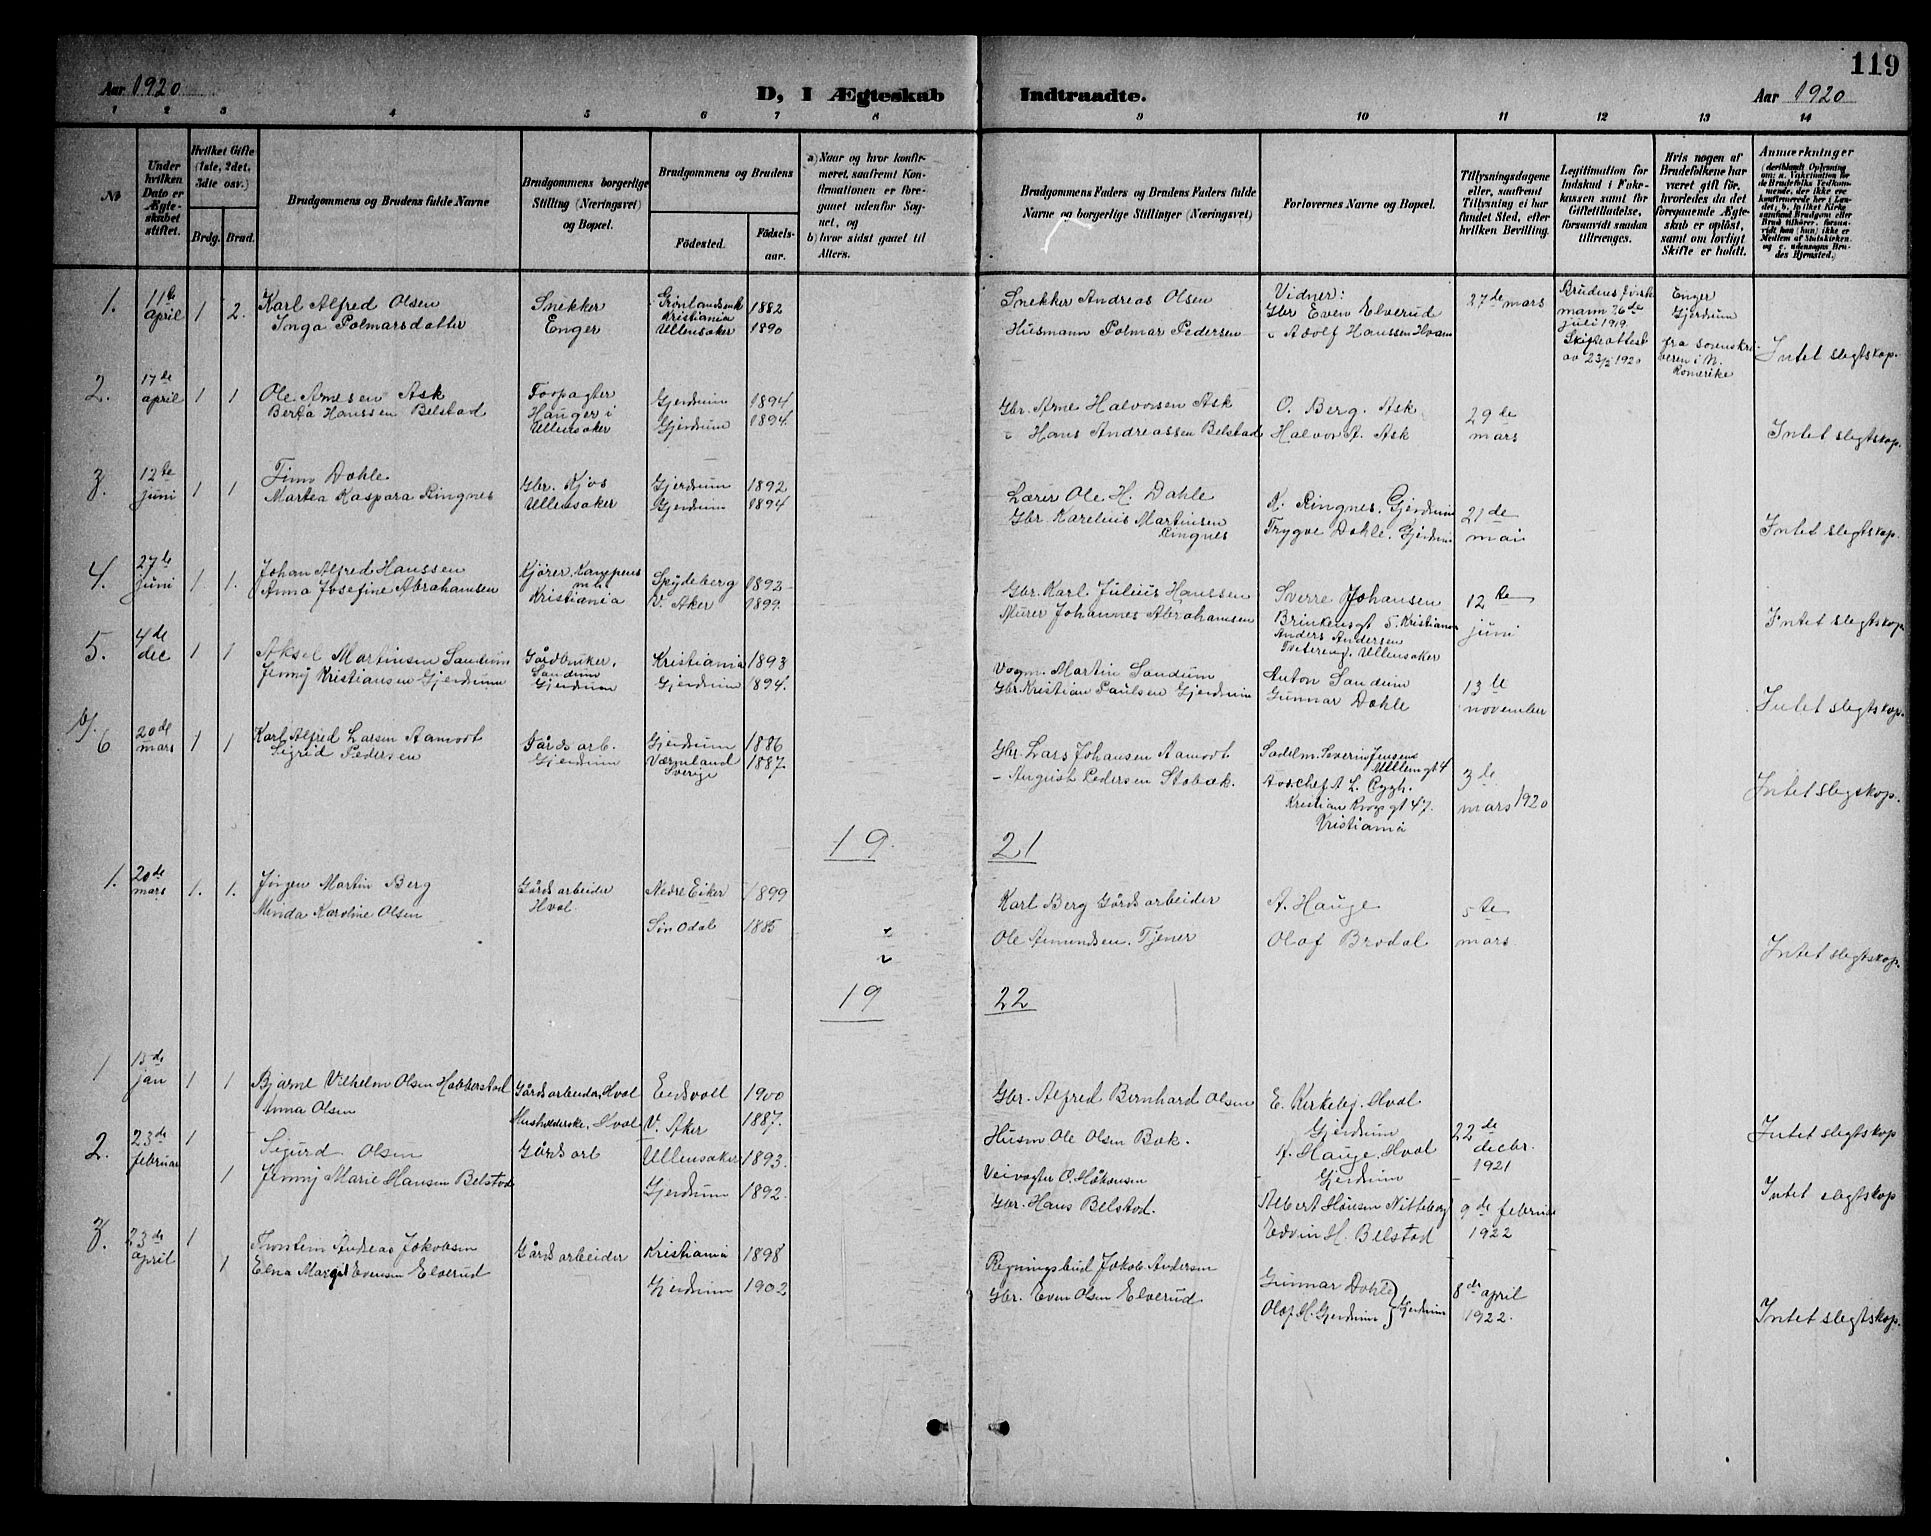 119
Aar 1920
D, I Ægteskab Indtraadte.
Aar 1920
1 2 3 4 5 6 7 8 9 10 11 12 13 14
No
Under hvilken Dato er Ægteskabet stiftet.
Hvilket Gifte (1ste, 2det, 3die osv.)
Brdg. Brud.
Brudgommens og Brudens fulde Navne
Brudgommens borgerlige Stilling (Næringsvei) og Bopæl.
Brudgommens og Brudens
Fødested.
Fødselsaar.
a) Naar og hvor konfirmeret, saafremt Konfirmationen er foregaaet udenfor Sognet, og
b) hvor sidst gaaet til Alters.
Brudgommens Faders og Brudens Faders fulde Navne og borgerlige Stillinger (Næringsvei)
Forlovernes Navne og Bopæl.
Tillysningsdagene eller, saafremt Tillysning ei har fundet Sted, efter hvilken Bevilling.
Legitimation for Indskud i Fakrkassen samt for Giftetilladelse, forsaavidt saadan tiltrænges.
Hvis nogen af Brudefolkene har været gift før, hvorledes da det foregaaende Ægteskab er opløst, samt om lovligt Skifte er holdt.
Anmærkninger
1. 11te april 1 2. Karl Alfred Olsen Snekker Grønlandsenk Kristiania 1882 Snekker Andreas Olsen Vidner: Gbr Even Elverud 27de mars
Inga Polmarsdatter Enger Ullensaker 1890 Husmann Polmar Pedersen " Adolf Hanssen Hvam
Brudens første mann 26de juli 1919. Skifteattest av 23/2 1920
Enger Gjerdrum
fra sorenskriveren i N. Romerike
Intet slegtskap.
2. 17de april 1 1 Ole Arnesen Ask Forpagter Gjerdrum 1894 Gbr. Arne Halvorsen Ask O. Berg. Ask 29de mars
Berta Hanssen Belstad Hauger i Ullensaker Gjerdrum 1894. " Hans Andreassen Belstad Halvor A. Ask
Intet slegtskap.
3. 12te juni 1 1 Finn Dahle Gbr. Kjos Gjerdrum 1892 Lærer Ole H. Dahle K. Ringnes, Gjerdrum 21de mai
Martea Kaspara Ringnes Ullensaker Gjerdrum 1894 Gbr. Karelius Martinsen Ringnes Trygve Dahle, Gjerdrum
Intet slegtskap.
4. 27de juni 1. 1. Johan Alfred Hanssen Kjører, Kampens Spydeberg 1893 Gbr. Karl Julius Hanssen Sverre Johansen 12te juni
Anna Josefine Abrahamsen Kristiania V. Aker 1899. Murer Johannes Abrahamsen Brinkensgt 5. Kristiania
Anders Andersen
Tveitereng, Ullensaker
Intet slegtskap
5. 4de dec 1 1 Aksel Martinsen Sandum Gårdbruker, Kristiania 1893 Vogm. Martin Sandum Anton Sandum 13te november
Jenny Kristiansen Gjerdrum Sandum Gjerdrum Gjerdrum 1894. Gbr. Kristian Paulsen Gjerdrum Gunnar Dahle
Intet slegtskap.
b/.
6 20de mars 1 1 Karl Alfred Larsen Aamodt Gårdsarb. Gjerdrum 1886 Gbr. Lars Johansen Aamodt Sadelm. Severin Jensen 3de mars 1920
Sigrid Pedersen Gjerdrum Værmland Sverige 1887. – August Pedersen Stobæk. Avd.chef A L. Bygh.
47. Kristiania
Intet slegtskap.
19. 21
1. 20de mars 1. 1. Jørgen Martin Berg Gårdsarbeider Hval Nedre Eiker 1899 Karl Berg Gårdsarbeider A. Hauge 5te mars
Minda Karoline Olsen Søn Odal 1885 Ole Amundsen. Tjener Olaf Brodal
Intet slegtskap.
19 22
1 15de jan 1 1 Bjarne Vilhelm Olsen Habberstad Gårdsarbeider, Hval Eidsvoll 1900 Gbr. Alfred Bernhard Olsen E. Kirkeby, Hval Gjerdrum 22de decbr. 1921
Anna Olsen Husholderske, Hval V. Aker 1887. Husm Ole Olsen Bæk. A. Hauge, Hval Gjerdrum
Intet slegtskap
2. 23de februar 1 1 Sigurd Olsen Gårdsarb Ullensaker 1893. Veivogter O. Håkonsen Albert Hansen Nitteberg 9de februar 1922
Jenny Marie Hansen Belstad Gjerdrum 1892. Gbr. Hans Belstad. Edvin H. Belstad
Intet slegtskap
3. 23de april 1 1 Trontein Andreas Jakobsen Gårdsarbeider Kristiania 1898 Regningsbud Jakob Andersen Gunnar Dahle 8de april 1922.
Edna Margit Evensen Elverud Gjerdrum 1902 Gbr. Even Olsen Elverud Olaf H. Gjerdrum } Gjerdrum
Intet slegtskap.